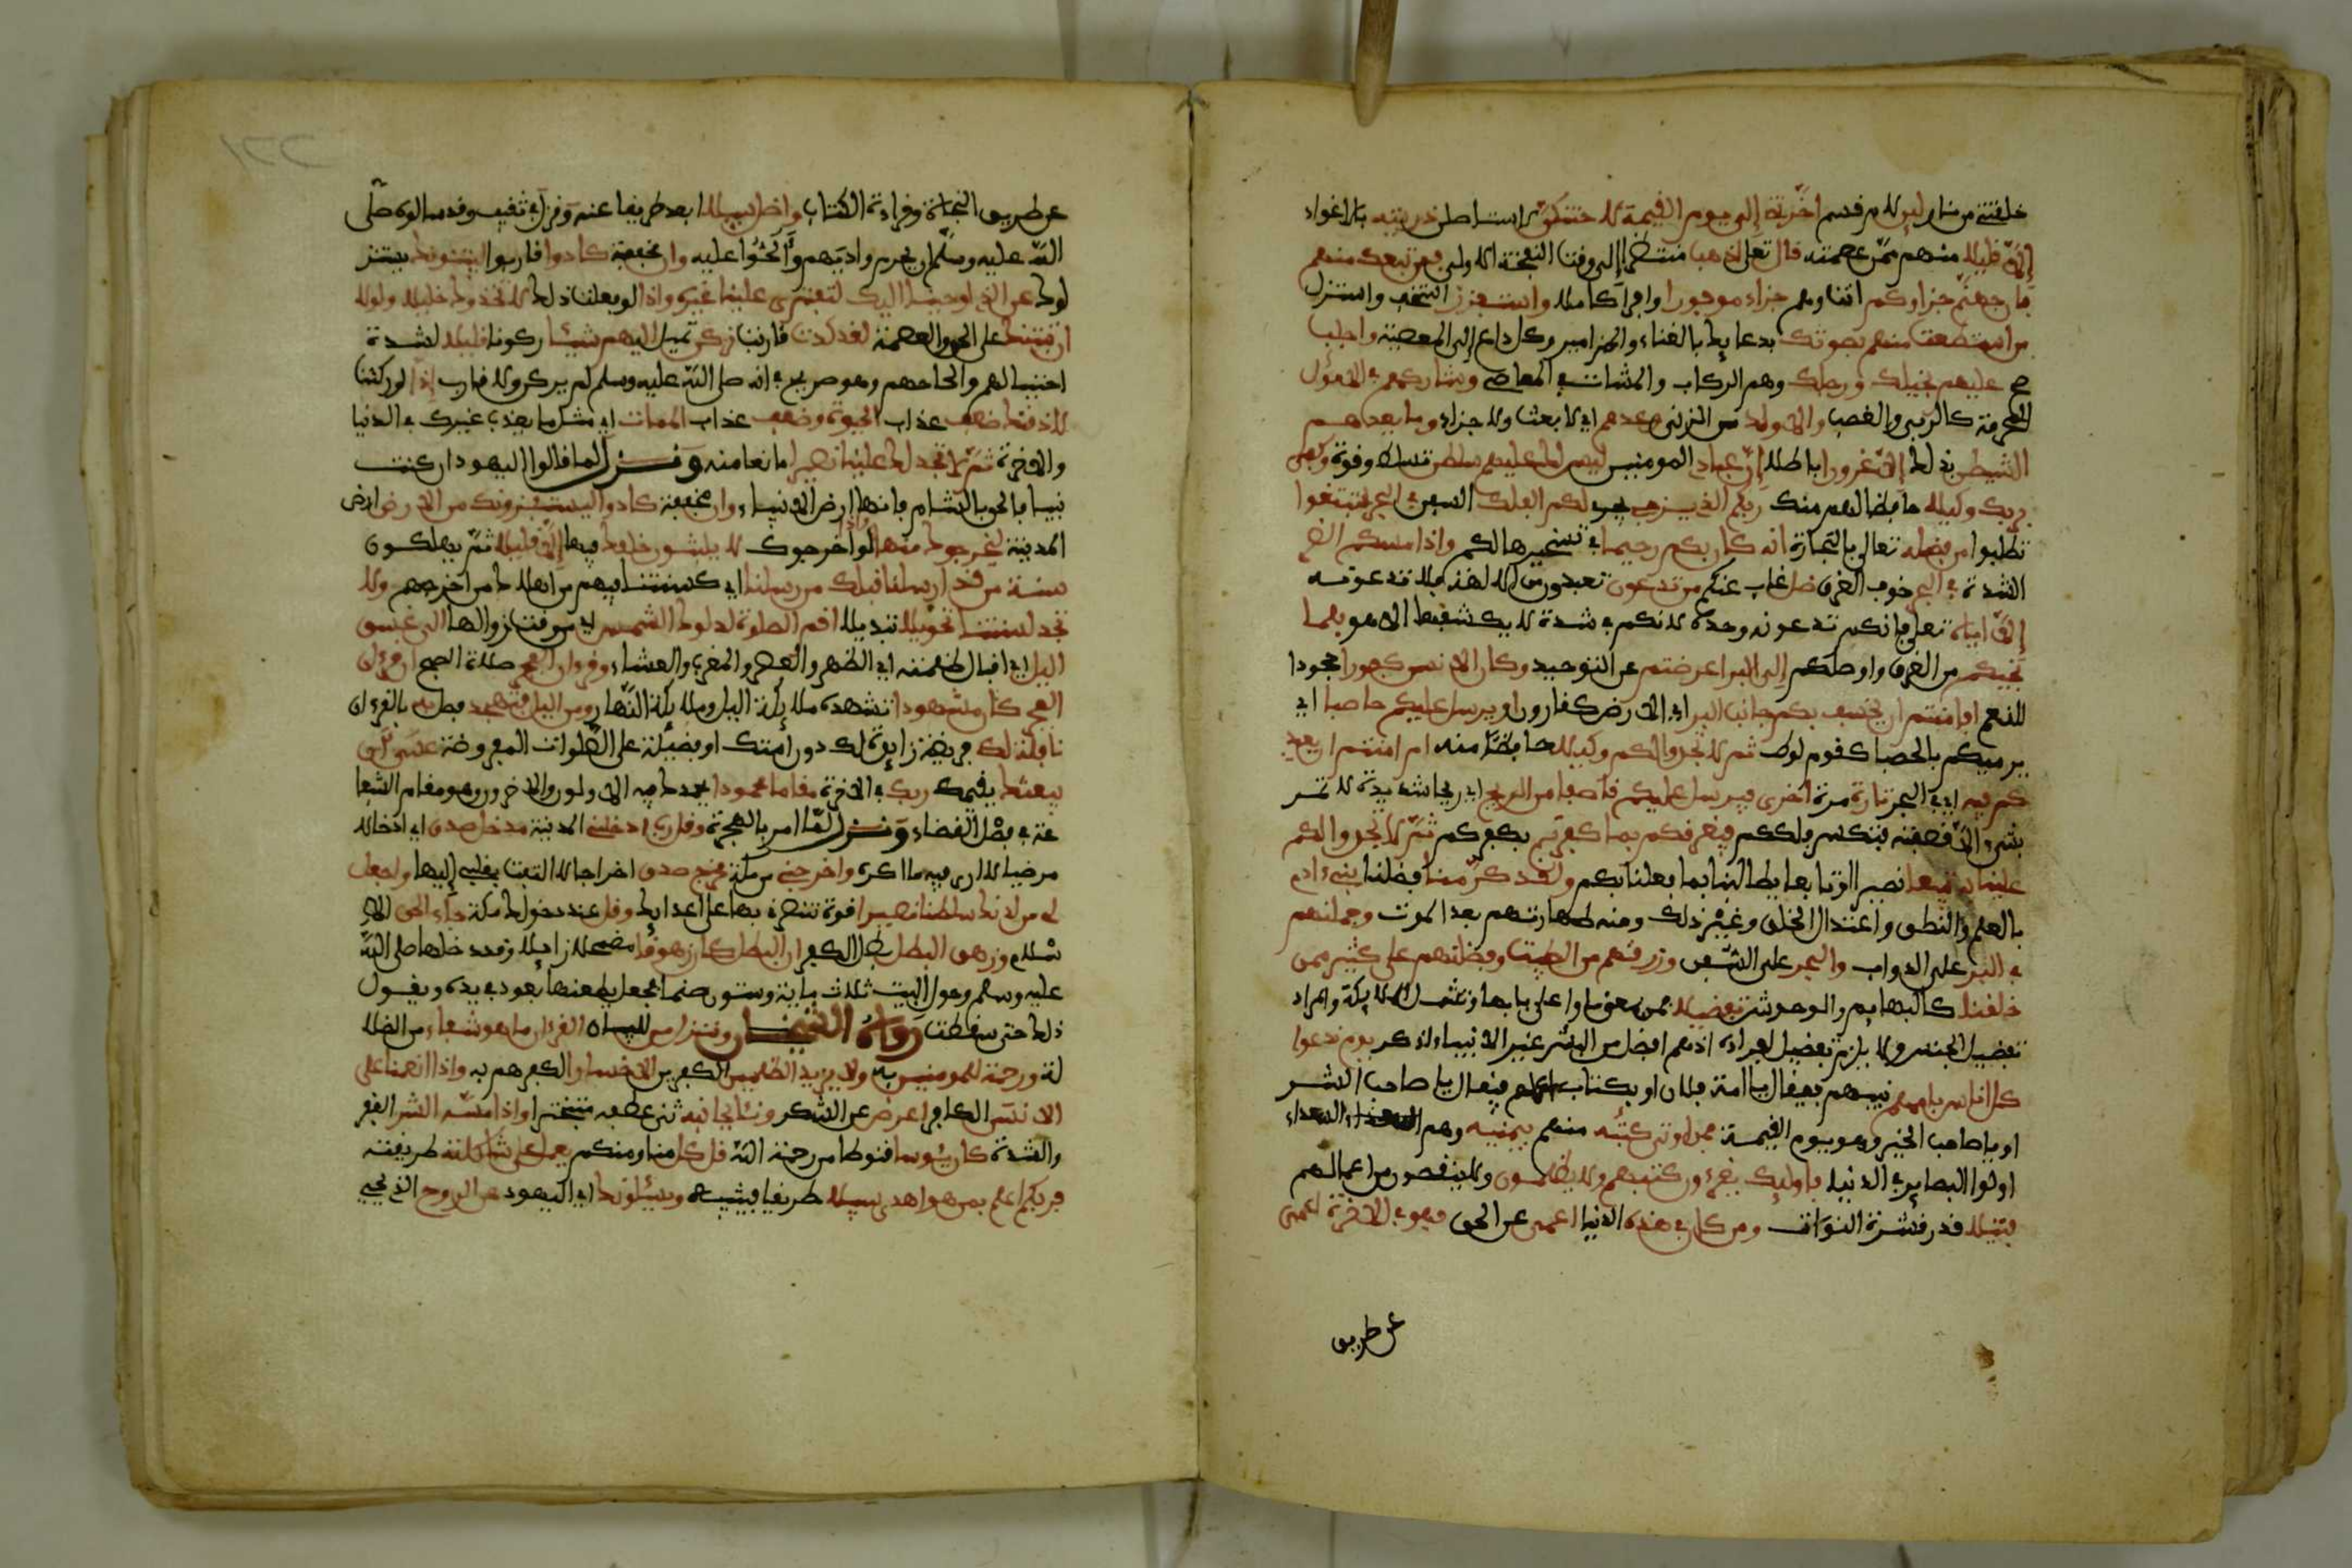 خلقتني من نار لين لام قسم اخرتن إلى يوم القيمة لاحتنكن لاستاصلن ذريته بالاغواء
إلا قليلا منهم ممن عصمته قال تعالى اذهب منتظرا إلى وقت النفخة الاولى فمن تبعك منهم
فإن جهنم جزاؤكم انت وهم جزاء موفورا وافرا كاملا واستفزز استخف واستنزل
من استطعت منهم بصوتك بدعايك بالغناء والمزامير وكل داع إلى المعصية واجلب
صح عليهم بخيلك ورجلك وهم الركاب والمشاة في المعاصي وشاركهم في الاموال
المحرمة كالربى والغصب والاولاد من الزنى وعدهم اي لا بعث ولا جزاء وما يعدهم
الشيطن بذلك إلا غرورا باطلا إن عبادي المومنين ليس لك عليهم سلطن تسلط وقوة وكفى
بربك وكيلا حافظا لهم منك ربكم الذي يزجي يجري لكم الفلك السفن في البحر لتبتغوا
تطلبوا من فضله تعالى بالتجارة انه كان بكم رحيما في تسخيرها لكم واذا مسكم الضر
الشدة في البحر خوف الغرق ضل غاب عنكم من تدعون تعبدون من الالهة فلا تدعونه
إلا اياه تعالى فإنكم تدعونه وحده لانكم في شدة لا يكشفها الا هو فلما
نجيكم من الغرق واوصلكم إلى البر اعرضتم عن التوحيد وكان الانسن كفورا جحودا
للنعم افامنتم ان يخسف بكم جانب البر اي الارض كقارون او يرسل عليكم حاصبا اي
يرميكم بالحصبا كقوم لوط ثم لا تجدوا لكم وكيلا حافظا منه ام امنتم ان يعيد
كم فيه اي في البحر تارة مرة اخرى فيرسل عليكم قاصفا من الريح اي ريحا شديدة لا تمر
بشيء الا قصفته فتكسر فلككم فيغرقكم بما كفرتم بكفركم ثم لا تجدوا لكم
علينا به تبيعا نصيرا او تابعا يطالبنا بما فعلنا بكم ولقد كرمنا فضلنا بني ءادم
بالعلم والنطق واعتدال الخلق وغير ذلك ومنه طهارتهم بعد الموت وحملنهم
في البر على الدواب والبحر على السفن ورزقنهم من الطيبت وفضلنهم على كثير ممن
خلقنا كالبهايم والوحوش تفضيلا فمن بمعنى ما او على بابها وتشمل الملايكة والمراد
تفضيل الجنس ولا يلزم تفضيل افراده اذ هم افضل من البشر غير الانبياء اذكر يوم ندعوا
كل اناس بإممهم نبيهم فيقال يا امة فلان او بكتاب اعمالهم فيقال يا صاحب الشر
او يا صاحب الخير وهو يوم القيمة فمن اوتي كتبه منهم بيمينه وهم السعداء
اولوا البصاير في الدنيا فاوليك يقرءون كتبهم ولا يظلمون ولا ينقصون من اعمالهم
فتيلا قدر قشرة النواة ومن كان في هذه الدنيا اعمى عن الحق فهو في الاخرة اعمى
عن طريق
عن طريق النجاة وقراءة الكتاب واضل سبيلا ابعد طريقا عنه ونزل في ثقيف وقد سالوه صلى
الله عليه وسلم ان يحرم واديهم والحوا عليه وان مخففة كادوا قاربوا ليفتنونك يستنز
لونك عن الذي اوحينا اليك لتفتري علينا غيره واذا لو فعلت ذلك لاتخذوك خليلا ولولا
ان ثبتنك على الحق والعصمة لقد كدت قاربت تركن تميل اليهم شيئا ركونا قليلا لشدة
احتيالهم والحاحهم وهو صريح في انه صلى الله عليه وسلم لم يركن ولا قارب إذا لو ركنت
لاذقنك ضعف عذاب الحيوة وضعف عذاب الممات اي مثلي ما يعذب غيرك في الدنيا
والاخرة ثم لا تجد لك علينا نصيرا مانعا منه ونزل لما قال له اليهود ان كنت
نبيا فالحق بالشام فإنها ارض الانبياء وان مخففة كادوا ليستفزونك من الارض ارض
المدينة ليخرجوك منها واذا لو اخرجوك لا يلبثون خلفك فيها إلا قليلا ثم يهلكون
سنة من قد ارسلنا قبلك من رسلنا اي كسنتنا فيهم من اهلاك من اخرجهم ولا
تجد لسنتنا تحويلا تبديلا اقم الصلوة لدلوك الشمس اي من وقت زوالها الى غسق
اليل اي اقبال ظلمته اي الظهر والعصر والمغرب والعشاء وقرءان الفجر صلاة الصبح ان قرءان
الفجر كان مشهودا تشهده ملايكة اليل وملايكة النهار ومن اليل فتهجد فصل به بالقرءان
نافلة لك فريضة زايدة لك دون امتك او فضيلة على الصلوات المفروضة عسى ان
يبعثك يقيمك ربك في الاخرة مقاما محمودا يحمدك فيه الاولون والاخرون وهو مقام الشفا
عة في فصل القضاء ونزل لما امر بالهجرة وقل رب ادخلني المدينة مدخل صدق اي ادخالا
مرضيا لا ارى فيه ما اكره واخرجني من مكة مخرج صدق اخراجا لا التفت بقلبي إليها واجعل
لي من لدنك سلطنا نصيرا قوة تنصرني بها على اعدايك وقل عند دخولك مكة جاء الحق الا
سلام وزهق البطل بطل الكفر ان البطل كان زهوقا مضمحلا زايلا وقد دخلها صلى الله
عليه وسلم وحول البيت ثلاث ماية وستون صنما فجعل يطعنها بعود في يده ويقول
ذلك حتى سقطت رواه الشيخان وننزل من للبيان القرءان ما هو شفاء من الضلا
لة ورحمة للمومنين به ولا يزيد الظلمين الكفرين الا خسارا لكفرهم به واذا انعمنا على
الانسن الكافر اعرض عن الشكر ونئا بجانبه ثنى عطفه متبخترا واذا مسه الشر الفقر
والشدة كان يئوسا قنوطا من رحمة الله قل كل منا ومنكم يعمل على شاكلته طريقته
فربكم اعلم بمن هو اهدى سبيلا طريقا فيثيبه ويسئلونك اي اليهود عن الروح الذي يحيى